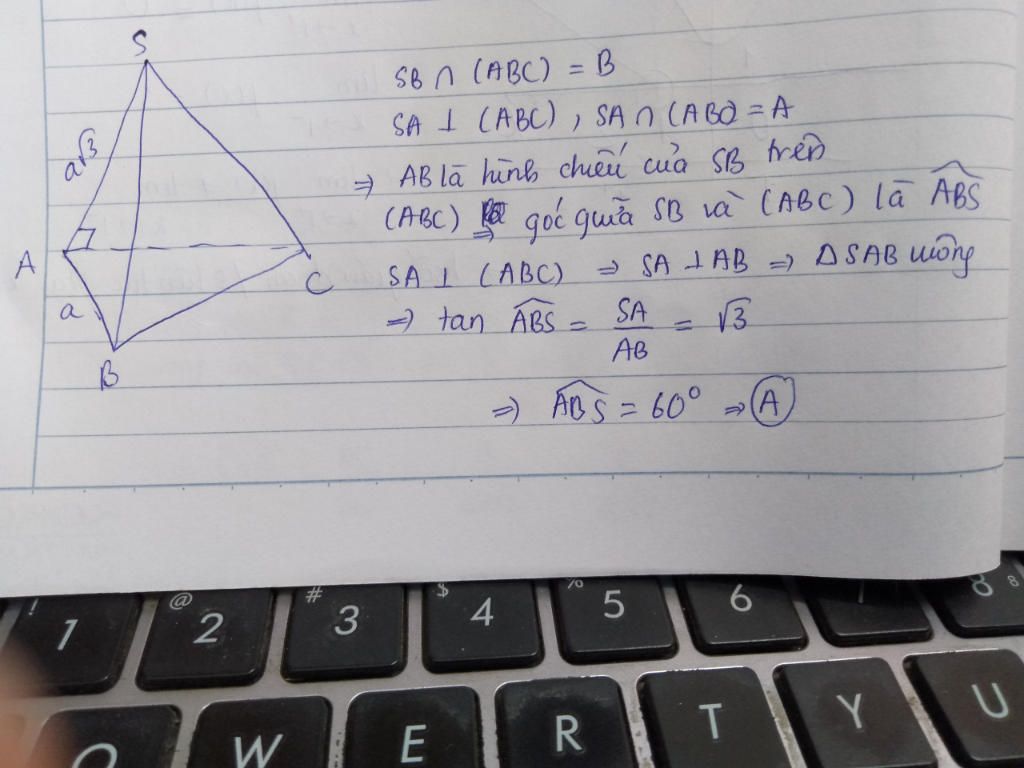 S
a√3
A
a
B
C
SB ∩ (ABC) = B
SA ⊥ (ABC), SA ∩ (ABC) = A
⇒ AB là hình chiếu của SB trên
(ABC) ⇒ góc giữa SB và (ABC) là \widehat{ABS}
SA ⊥ (ABC) ⇒ SA ⊥ AB ⇒ ΔSAB vuông
⇒ tan \widehat{ABS} = SA/AB = √3
⇒ \widehat{ABS} = 60° ⇒ A
! 1
@ 2
# 3
$ 4
% 5
6
7
8 8
Q W E R T Y U